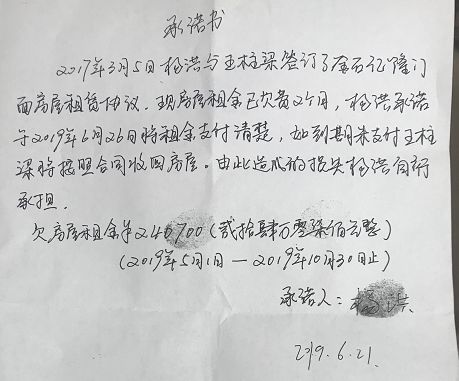 承诺书
2017年3月5日杨洪与王柱梁签订了金石亿隆门
面房屋租赁协议。现房屋租金已欠费2个月，杨洪承诺
于2019年6月26日将租金支付清楚，如到期未支付王柱
梁将按照合同收回房屋。由此造成的损失杨洪自行
承担.
欠房屋租金￥240700（贰拾肆万零柒佰元整）
（2019年5月1日—2019年10月30日止）
承诺人：杨洪
2019.6.21.